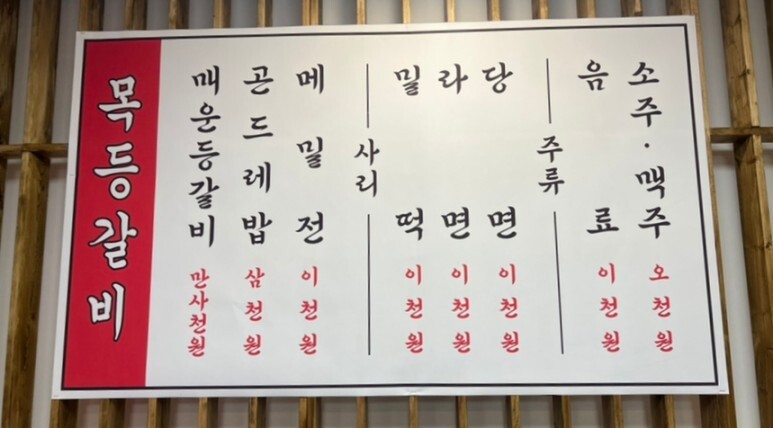 목등갈비
매운등갈비 만사천원
곤드레밥 삼천원
메밀전 이천원
사리
밀떡 이천원
라면 이천원
당면 이천원
주류
음료 이천원
소주·맥주 오천원